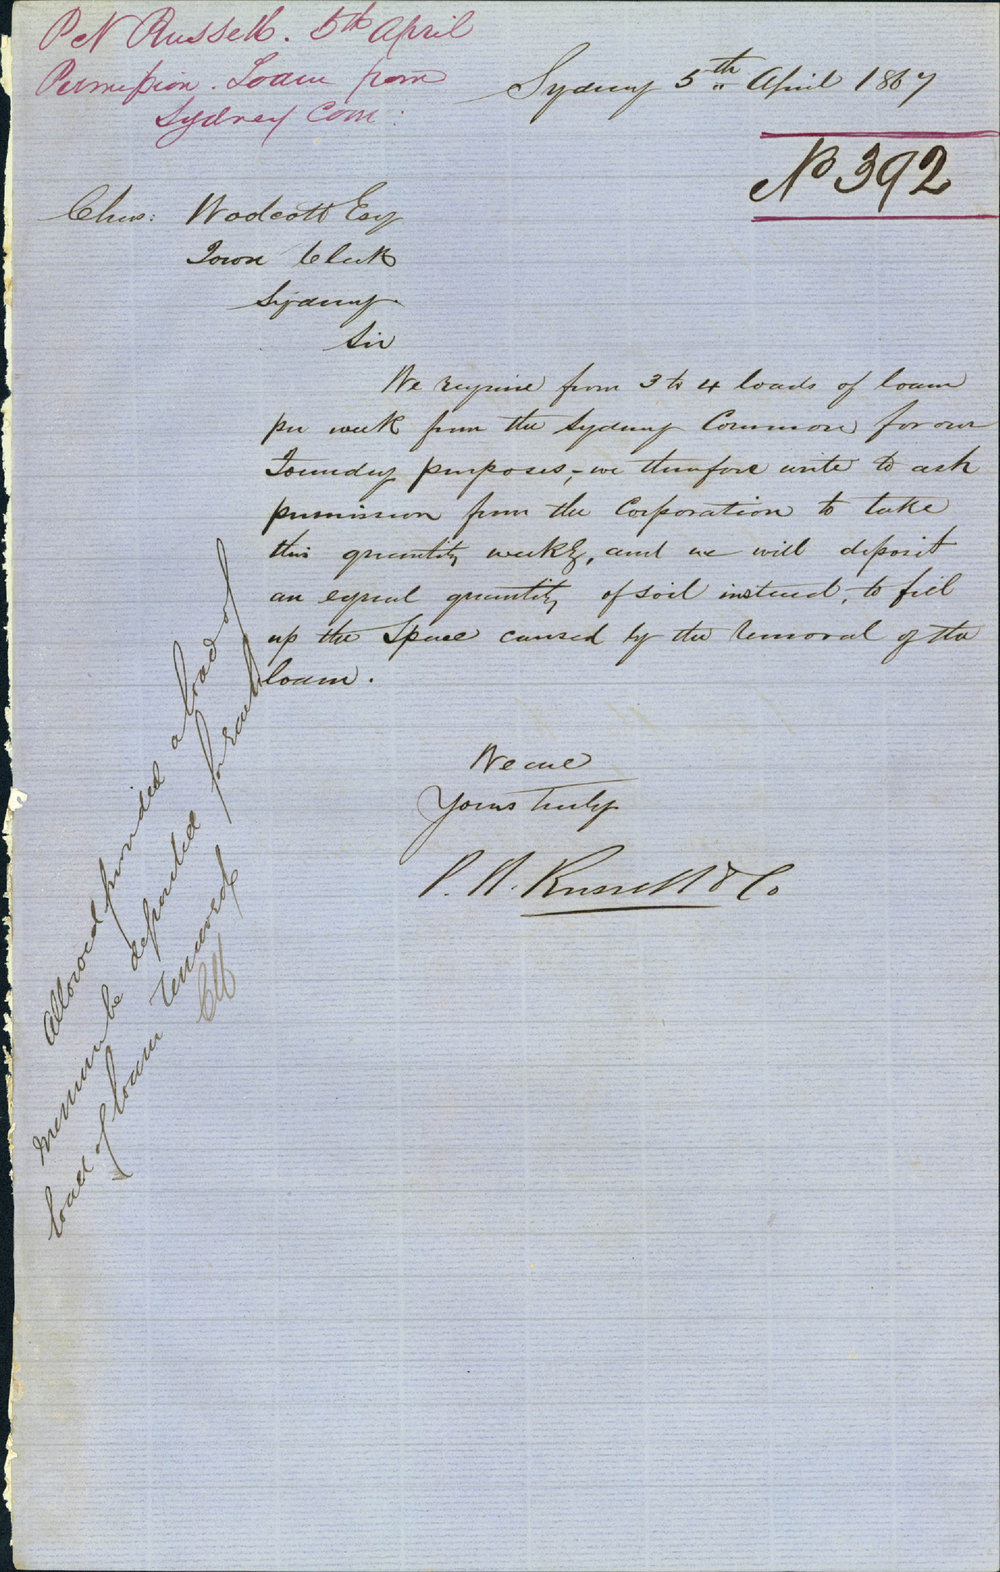 P N Russell. 5th April
Permission. Loam from
Sydney Com:
Sydney 5th April 1867
No 392
Chas: Woolcott Esq
Town Clerk
Sydney
Sir
We require from 3 to 4 loads of loam
per week from the Sydney Common for our
Foundry purposes, - we therefore write to ask
permission from the Corporation to take
this quantity weekly, and we will deposit
an equal quantity of soil instead, to fill
up the space caused by the removal of the
loam.
We are
Yours Truly
P. N. Russell & Co
Allowed provided a load of
manure be deposited for each
load of loam removed